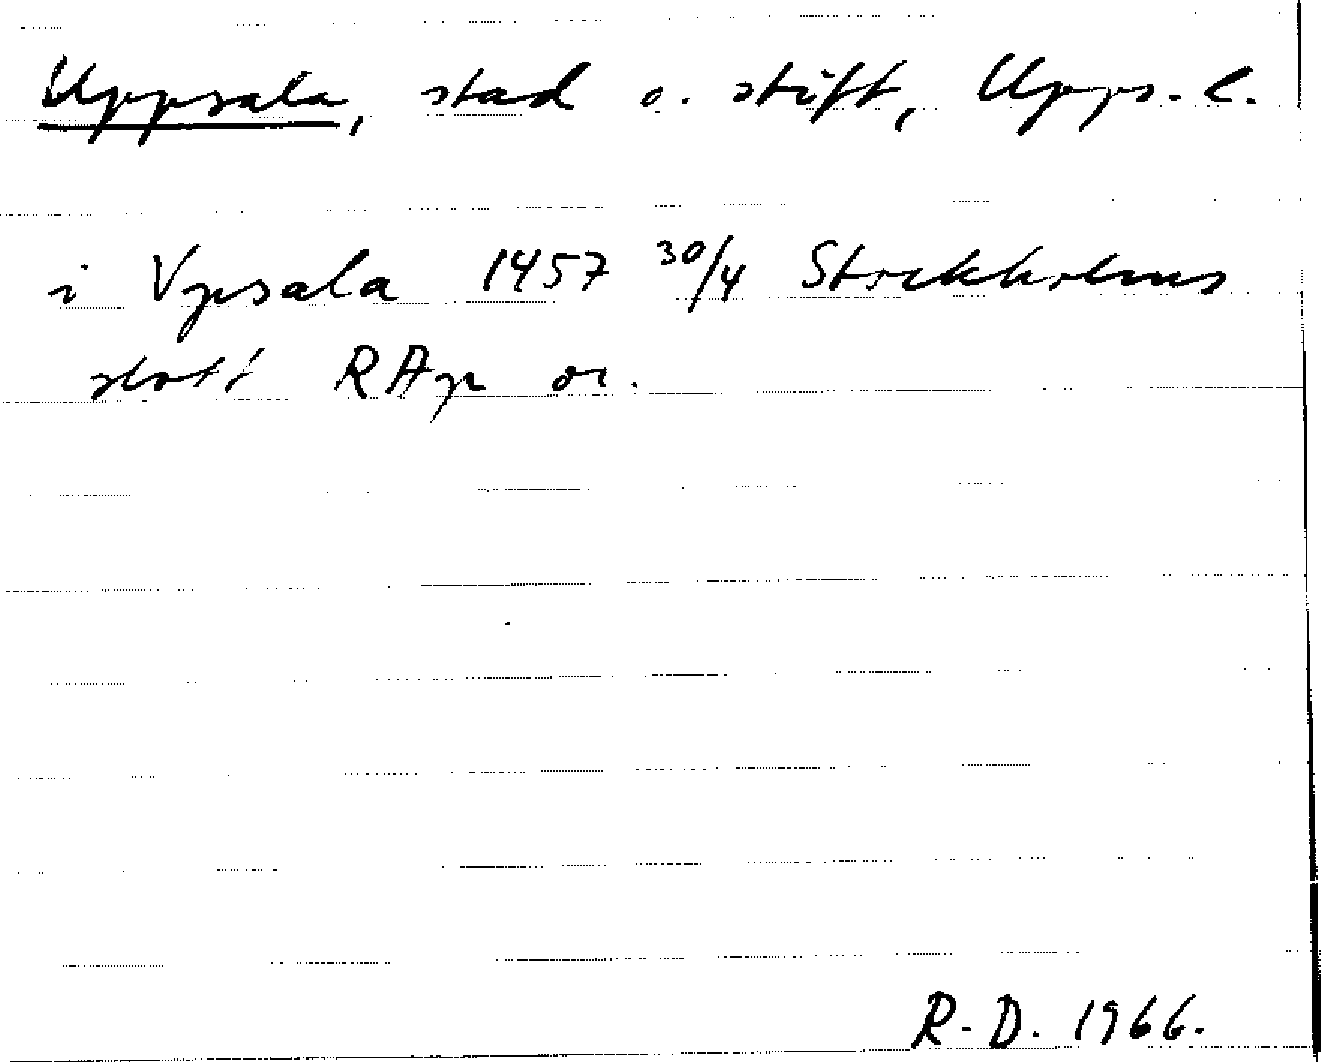 Uppsala, stad o. stift, Upps. l.
i Vpsala 1457 30/4 Stockholms
slott RAp or.
R. D. 1966.